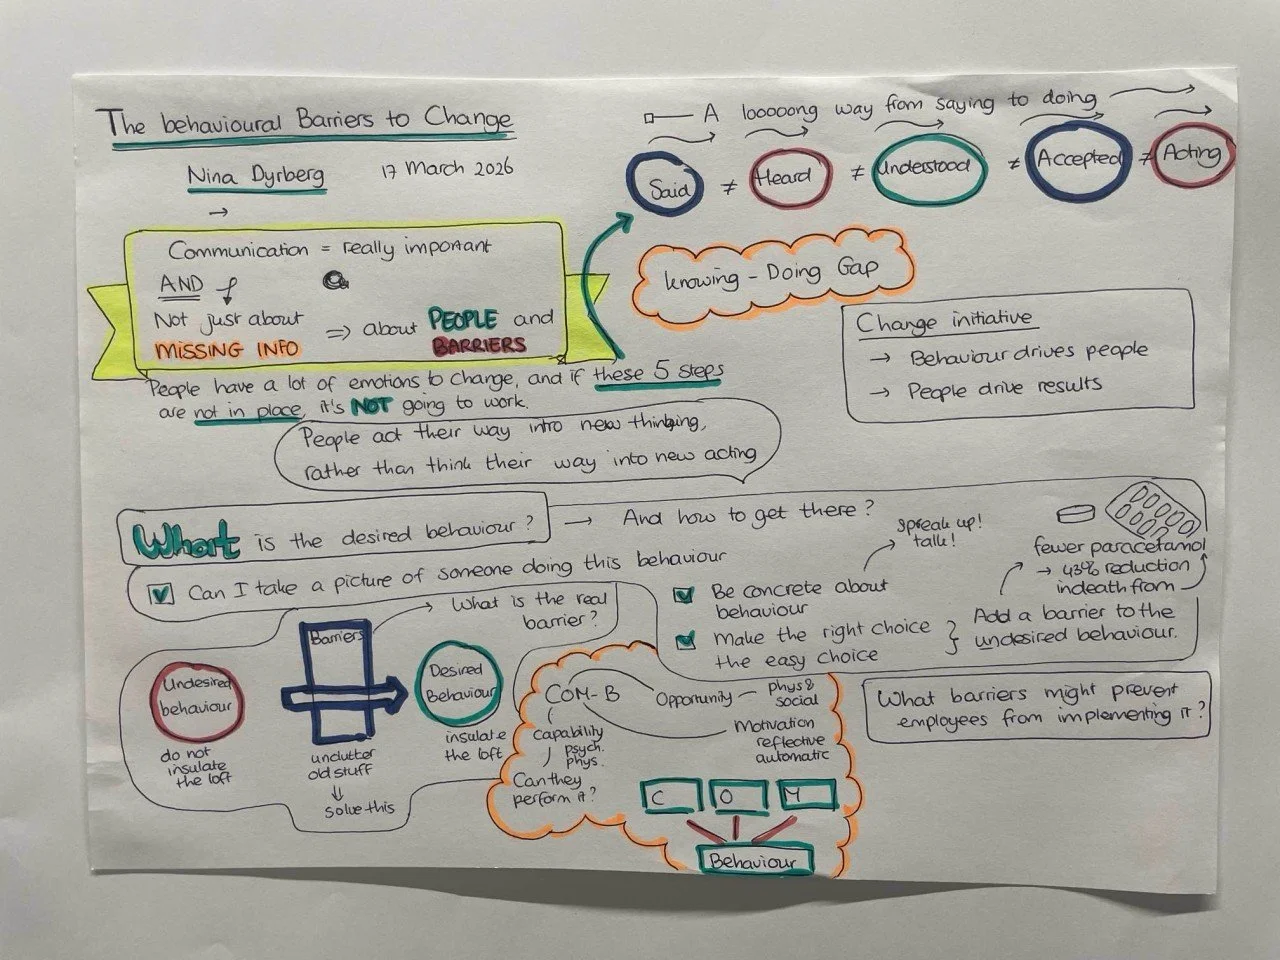 The behavioural Barriers to Change
Nina Dyrberg
17 March 2026
→
A looooong way from saying to doing
Said ≠ Heard ≠ Understood ≠ Accepted ≠ Acting
Communication = really important
AND
Not just about
MISSING INFO
⇒ about PEOPLE and
BARRIERS
Knowing - Doing Gap
Change initiative
→ Behaviour drives people
→ People drive results
People have a lot of emotions to change, and if these 5 steps
are not in place, it's NOT going to work.
People act their way into new thinking,
rather than think their way into new acting
What is the desired behaviour?
→ And how to get there?
Can I take a picture of someone doing this behaviour
Be concrete about
behaviour
Spreak up!
talk!
Make the right choice
the easy choice
Add a barrier to the
undesired behaviour.
fewer paracetamol
→ 43% reduction
in death from
What is the real
barrier?
Barriers
Undesired
behaviour
Desired
Behaviour
do not
insulate
the loft
unclutter
old stuff
solve this
insulate
the loft
COM-B
Capability
psych.
phys.
Can they
perform it?
Opportunity — phys &
social
Motivation
reflective
automatic
C O M
Behaviour
What barriers might prevent
employees from implementing it?